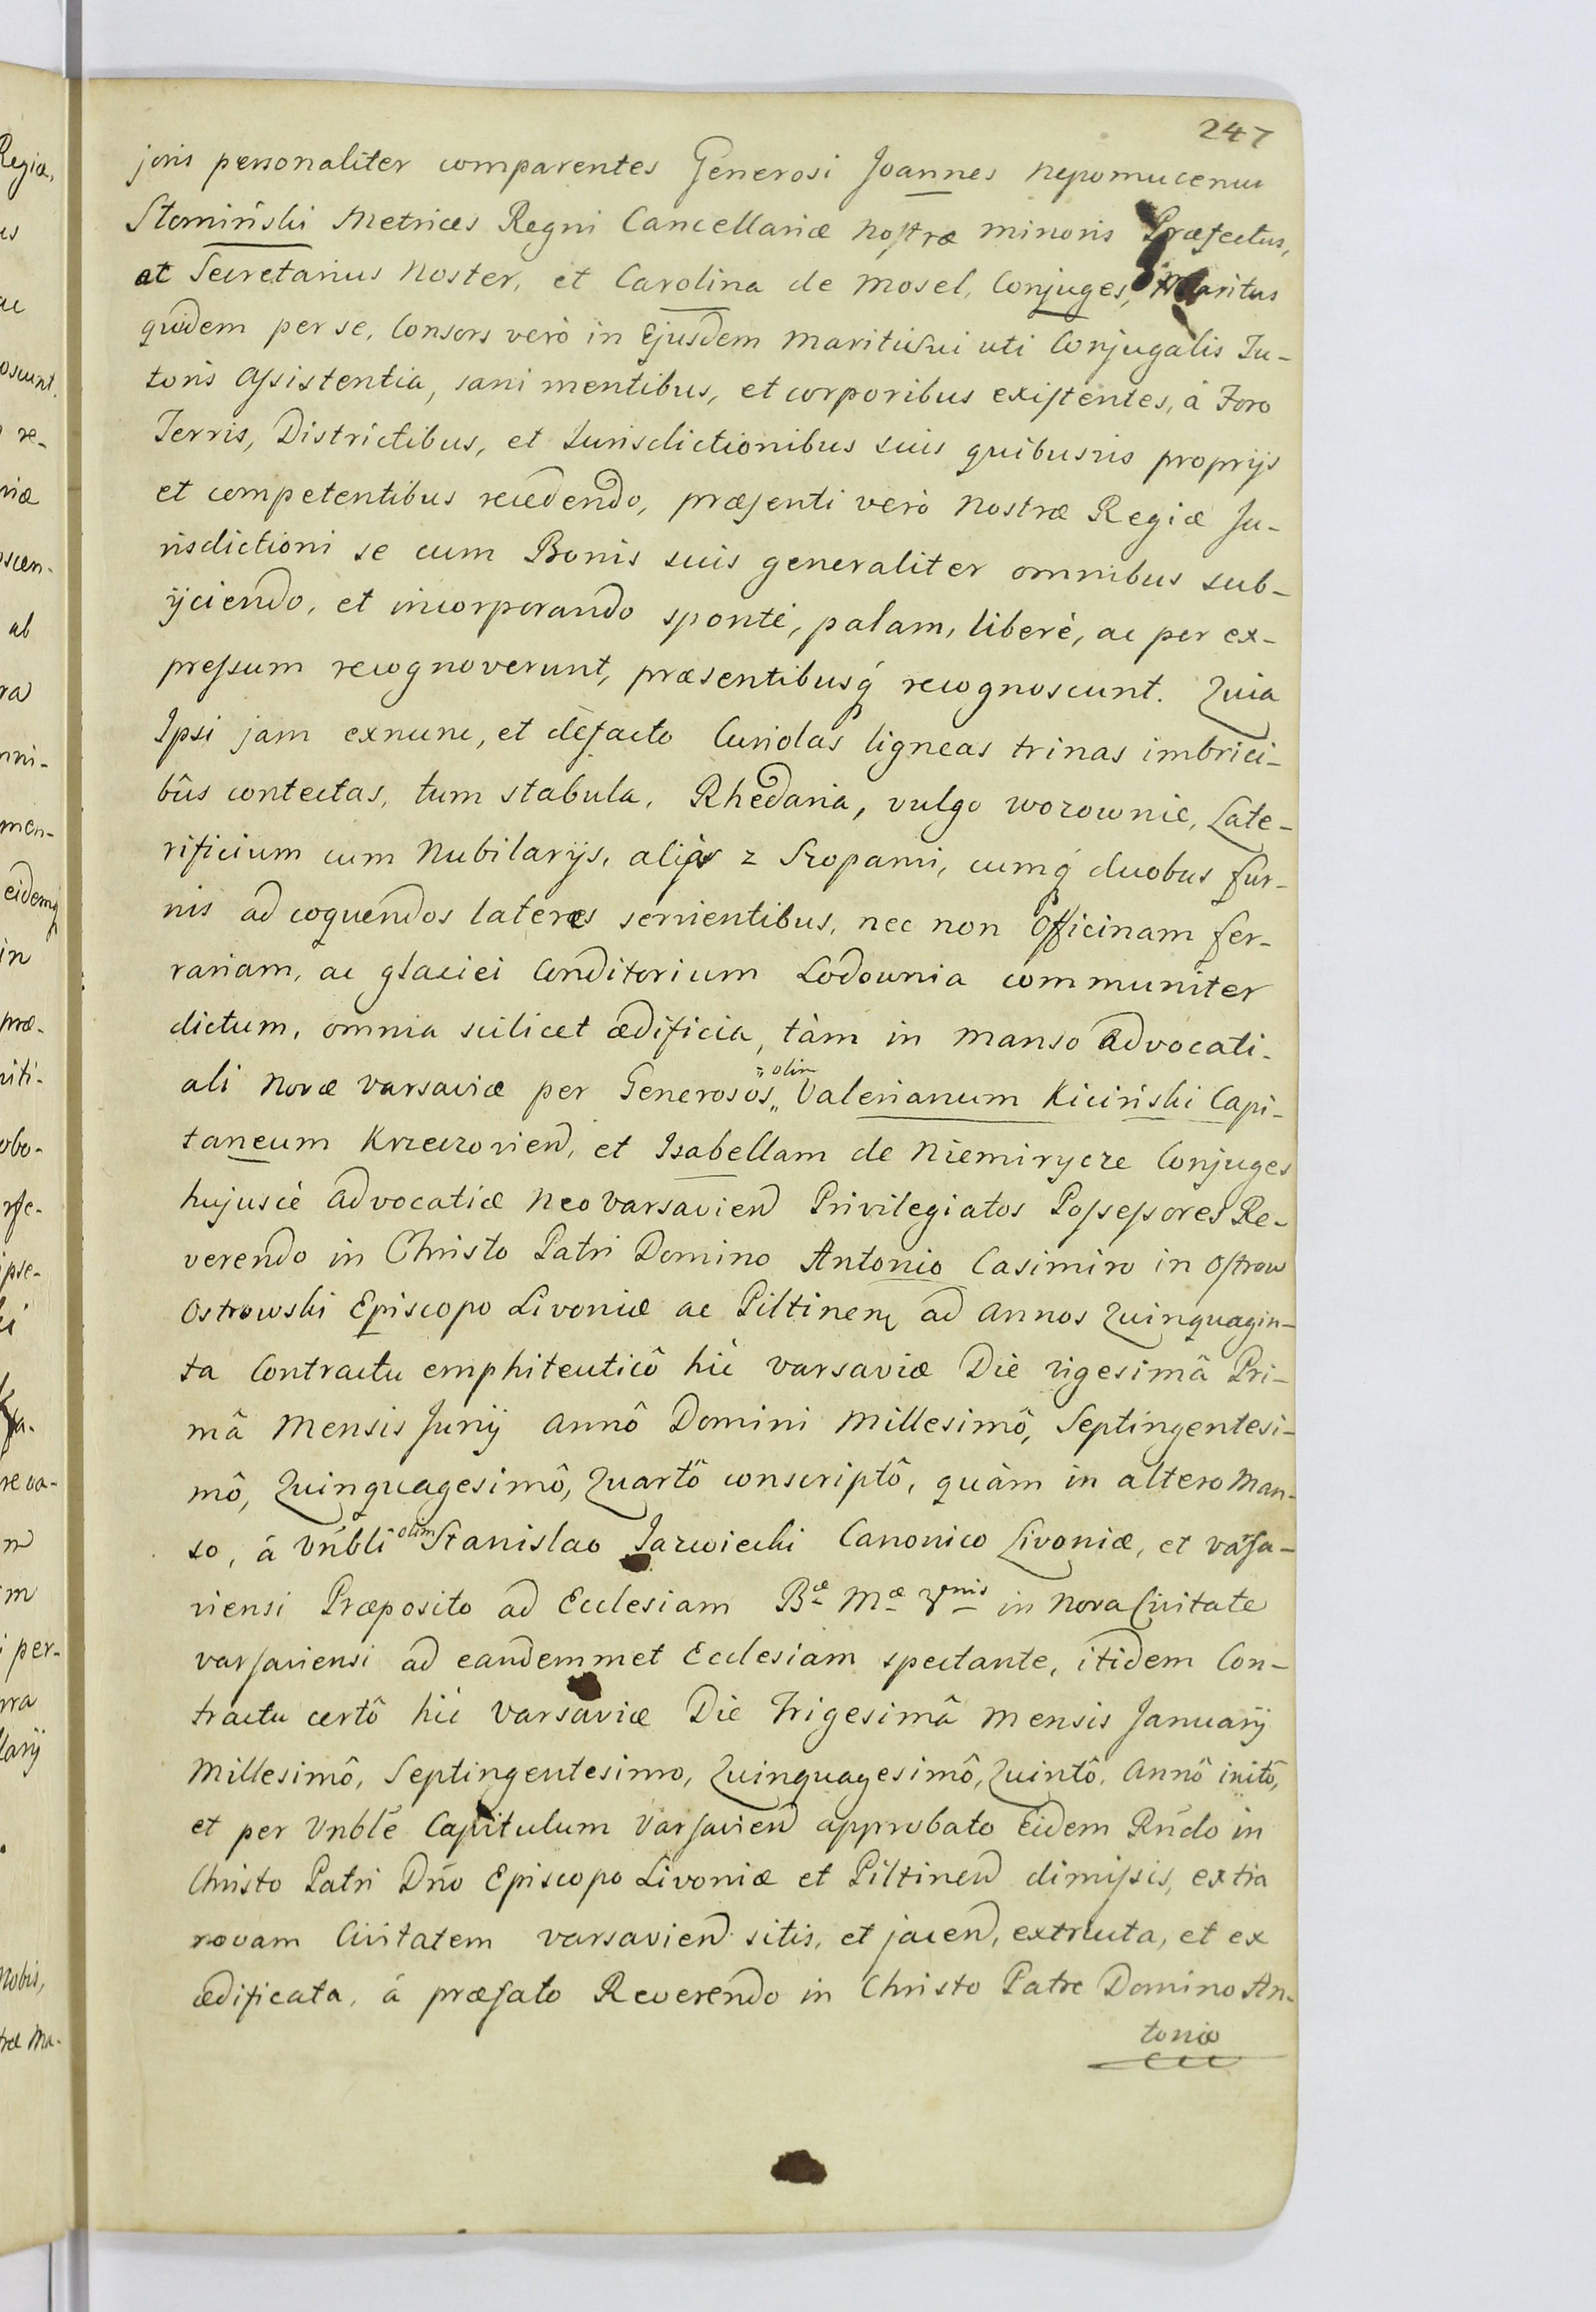 247
joris personaliter comparentes Generosi Joannes Nepomucenus
Słomiński Metrices Regni Cancellariæ Nostræ minoris Præfectus,
at Secretarius Noster, et Carolina de Mosel, Conjuges, Maritus
quidem per se, Consors verò in Ejusdem Mariti sui uti Conjugalis Tu-
toris Assistentia, sani mentibus, et corporibus existentes, à Foro
Terris, Districtibus, et Jurisdictionibus suis quibusvis proprijs
et competentibus recedendo, præsenti verò Nostræ Regiæ Ju-
risdictioni se cum Bonis suis generaliter omnibus sub-
ijciendo, et incorporando spontè, palam, liberè, ac per ex-
pressum recognoverunt, præsentibusq́ recognoscunt. Quia
Ipsi jam exnunc, et dèfacto Curiolas ligneas trinas imbrici-
bûs contectas, tum stabula, Rhedaria, vulgo wozownie, Late-
rificium cum Nubilarijs, aliàs z Szopami, cumq́ duobus fur-
nis ad coquendos lateres servientibus, nec non Officinam fer-
rariam, ac glaciei Conditorium Lodownia communiter
dictum, omnia scilicet ædificia, tàm in Manso Advocati-
ali Novæ Varsaviæ per Generosos „olim Valerianum Kiciński Capi-
taneum Krzeczovien, et Isabellam de Niemirycze Conjuges
hujuscè Advocatiæ Neo Varsavien Privilegiatos Possessores Re-
verendo in Christo Patri Domino Antonio Casimiro in Ostrow
Ostrowski Episcopo Livoniæ ac Piltinen ad Annos Quinquagin-
ta Contractu emphiteuticô hìc Varsaviæ Die vigesimâ Pri-
mâ Mensis Junij Annô Domini Millesimô, Septingentesi-
mô, Quinquagesimô, Quartô conscriptô, quàm in altero Man-
so, à Vńbli olim Stanislao Jarwiecki Canonico Livoniæ, et Varsa-
viensi Præposito ad Ecclesiam Bæ Mæ Vnis in Nova Civitate
Varsaviensi ad eandemmet Ecclesiam spectante, itidem Con-
tractu certô hìc Varsaviæ Die Trigesimâ Mensis Januarij
Millesimô, Septingentesimo, Quinquagesimô, Quintô, Annô initô,
et per Vnblē Capitulum Varsavien approbato Eidem Rńdo in
Christo Patri Dńo Episcopo Livoniæ et Piltinen dimissis, extra
novam Civitatem Varsavien sitis, et jacen, extructa, et ex
ædificata, à præfato Reverendo in Christo Patre Domino An-
tonio